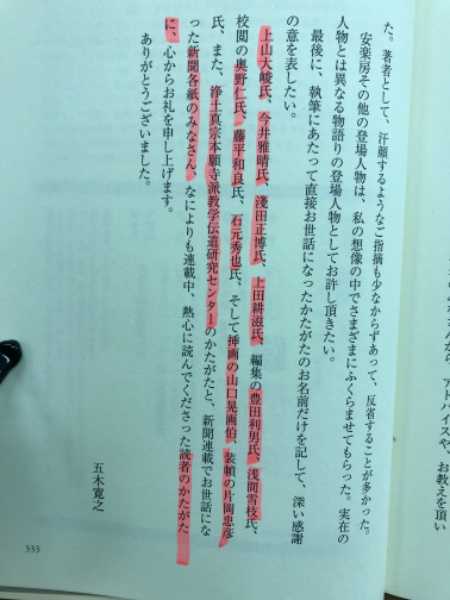 アドバイスや、お教えを頂い
た。著者として、汗顔するようなご指摘も少なからずあって、反省することが多かった。
安楽房その他の登場人物は、私の想像の中でさまざまにふくらませてもらった。実在の
人物とは異なる物語りの登場人物としてお許し頂きたい。
最後に、執筆にあたって直接お世話になったかたがたのお名前だけを記して、深い感謝
の意を表したい。
上山大峻氏、今井雅晴氏、淺田正博氏、上田耕滋氏、編集の豊田利男氏、浅間雪枝氏、
校閲の奥野仁氏、藤平和良氏、石元秀也氏、そして挿画の山口晃画伯、装幀の片岡忠彦
氏、また、浄土真宗本願寺派教学伝道研究センターのかたがたと、新聞連載でお世話にな
った新聞各紙のみなさん、なによりも連載中、熱心に読んでくださった読者のかたがた
に、心からお礼を申し上げます。
ありがとうございました。
五木寛之
333